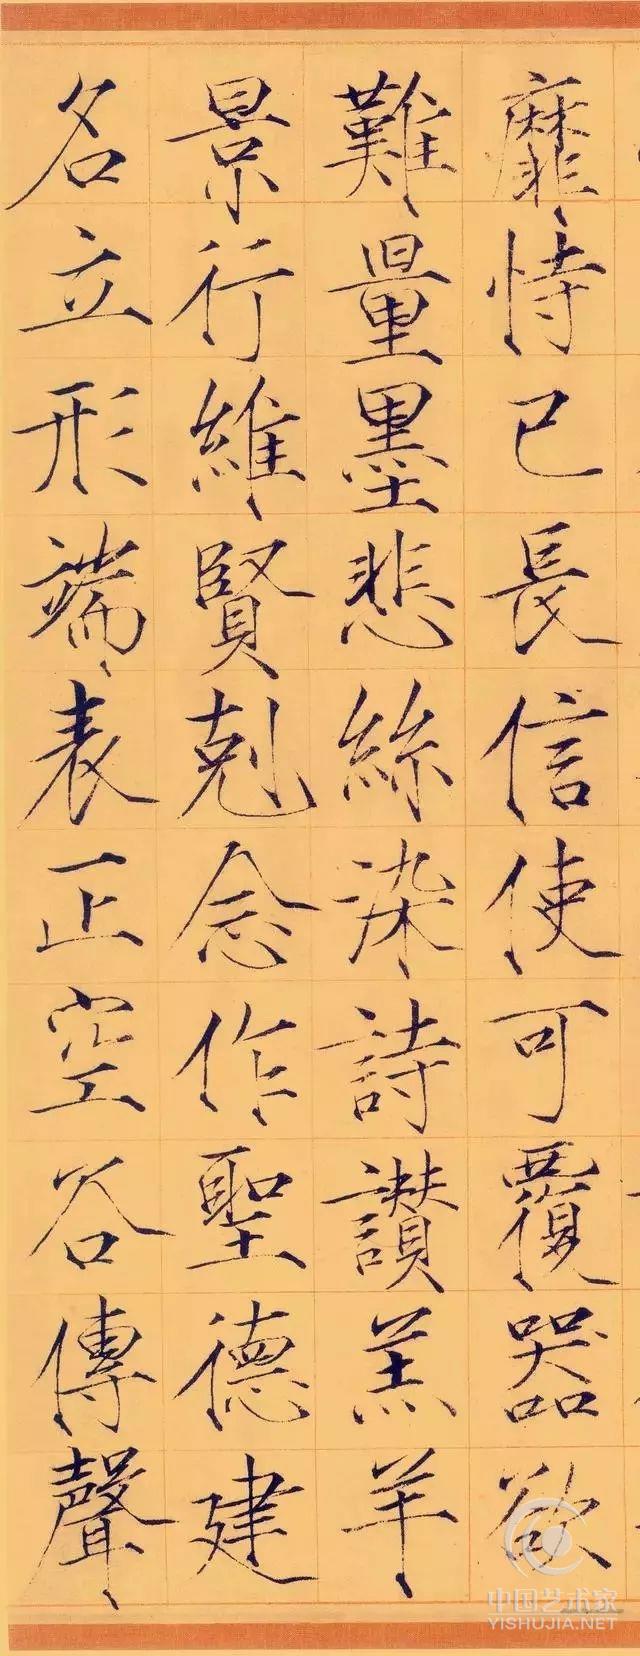 靡恃己長信使可覆器欲
難量墨悲絲染詩讃羔羊
景行維賢剋念作聖德建
名立形端表正空谷傳聲
中国艺术家
YISHUJIA.NET